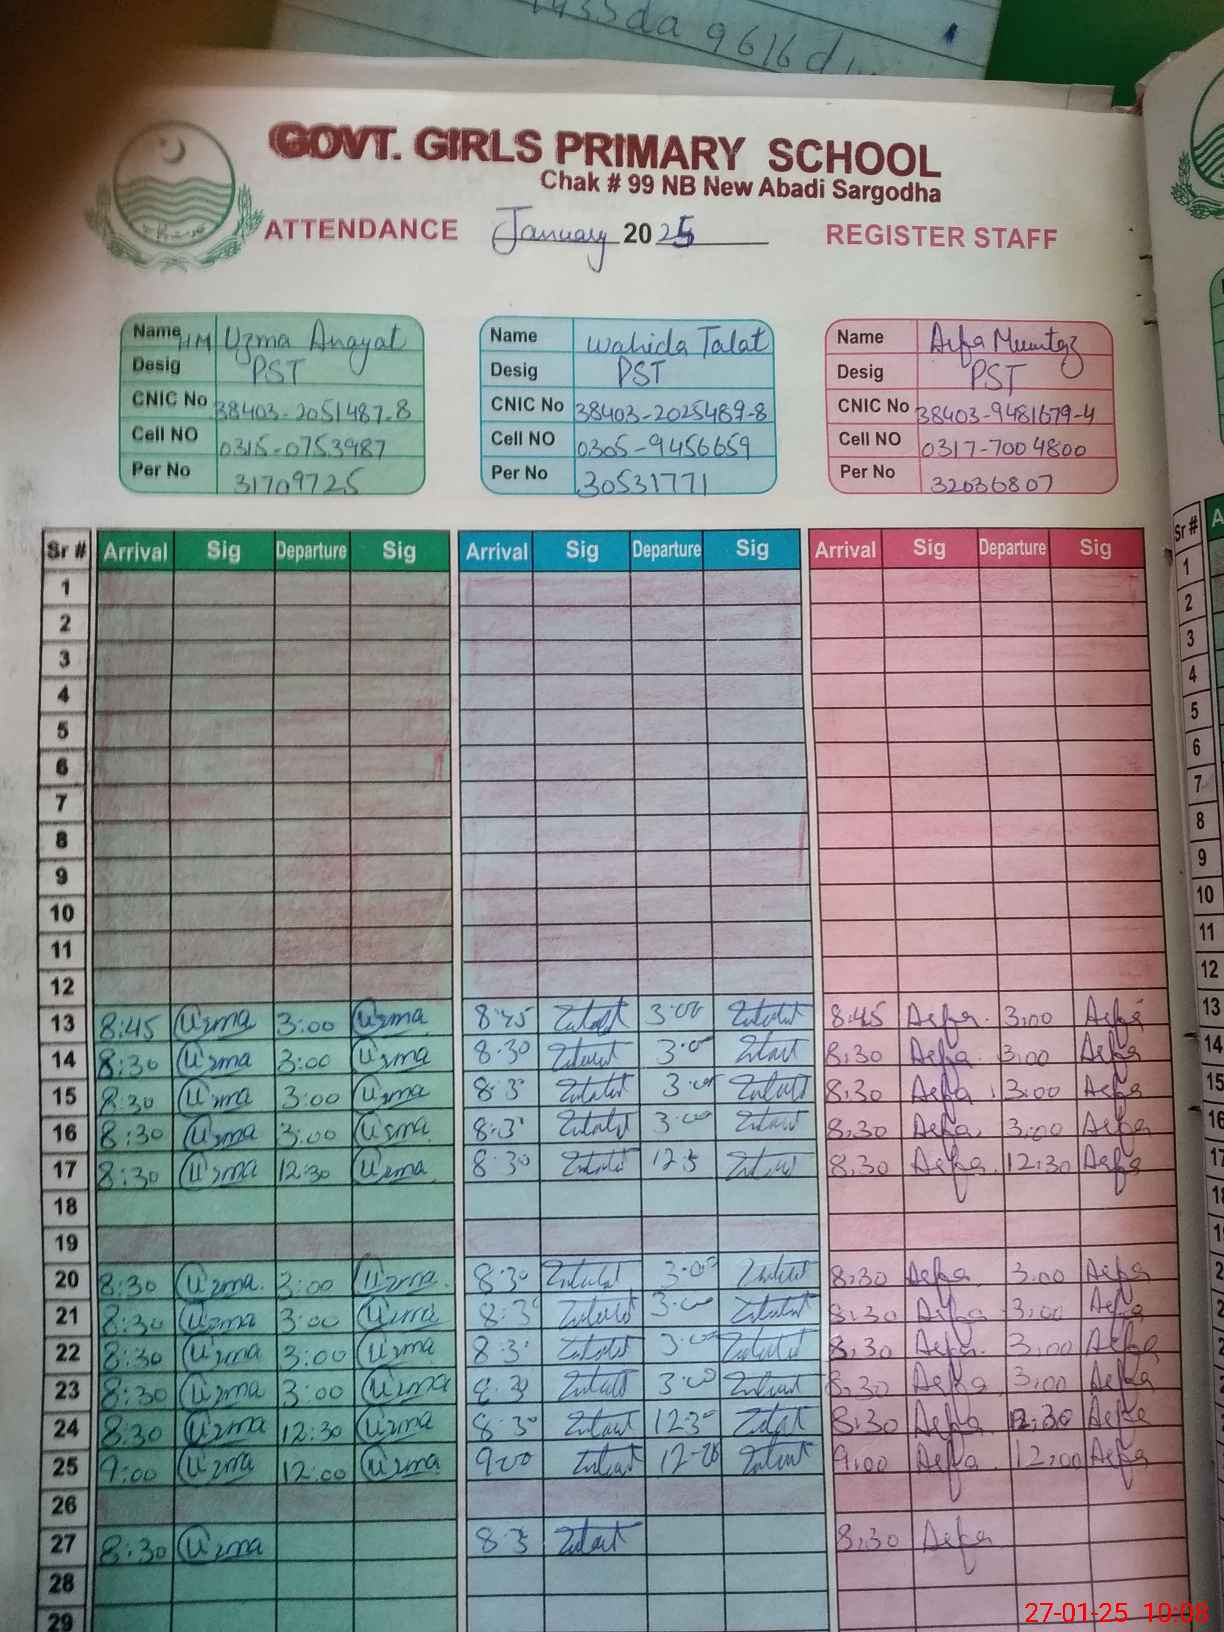 1433da 9616d
GOVT. GIRLS PRIMARY SCHOOL
Chak # 99 NB New Abadi Sargodha
ATTENDANCE January 2025 REGISTER STAFF
Name HM Uzma Anayat
Desig PST
CNIC No 38403-2051487-8
Cell NO 0315-0753987
Per No 31709725
Name Wahida Talat
Desig PST
CNIC No 38403-2025489-8
Cell NO 0305-9456659
Per No 30531771
Name Arfa Mumtaz
Desig PST
CNIC No 38403-9481679-4
Cell NO 0317-7004800
Per No 32036807
Sr # Arrival Sig Departure Sig Arrival Sig Departure Sig Arrival Sig Departure Sig
1
2
3
4
5
6
7
8
9
10
11
12
13 8:45 Uzma 3:00 Uzma 8:45 3:00 8:45 Arfa 3:00 Arfa
14 8:30 Uzma 3:00 Uzma 8:30 3:0 8:30 Arfa 3:00 Arfa
15 8:30 Uzma 3:00 Uzma 8:3 3:00 8:30 Arfa 3:00 Arfa
16 8:30 Uzma 3:00 Uzma 8:3 3:00 8:30 Arfa 3:00 Arfa
17 8:30 Uzma 12:30 Uzma 8:30 12:3 8:30 Arfa 12:30 Arfa
18
19
20 8:30 Uzma 3:00 Uzma 8:30 3:00 8:30 Arfa 3:00 Arfa
21 8:30 Uzma 3:00 Uzma 8:3 3:00 8:30 Arfa 3:00 Arfa
22 8:30 Uzma 3:00 Uzma 8:3 3:00 8:30 Arfa 3:00 Arfa
23 8:30 Uzma 3:00 Uzma 8:3 3:00 8:30 Arfa 3:00 Arfa
24 8:30 Uzma 12:30 Uzma 8:30 12:30 8:30 Arfa 12:30 Arfa
25 9:00 Uzma 12:00 Uzma 9:00 9:00 Arfa 12:00 Arfa
26
27 8:30 Uzma 8:3 8:30 Arfa
28
29
Sr #
1
2
3
4
5
6
7
8
9
10
11
12
13
14
15
16
17
27-01-25 10:08